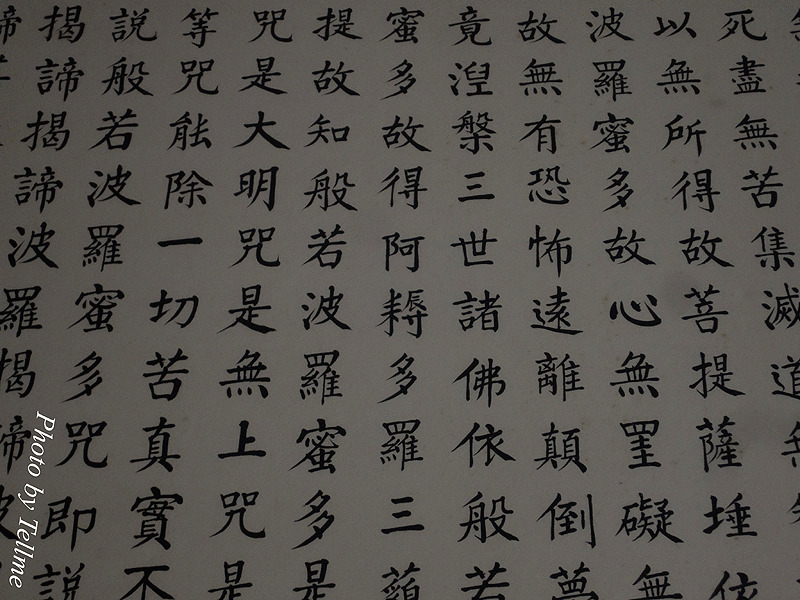 死盡無苦集滅道無
以無所得故菩提薩埵依
波羅蜜多故心無罣礙無
故無有恐怖遠離顛倒夢
竟湼槃三世諸佛依般若
蜜多故得阿耨多羅三藐
提故知般若波羅蜜多是
咒是大明咒是無上咒是
等咒能除一切苦真實不
説般若波羅蜜多咒即説
揭諦揭諦波羅揭諦波
Photo by Tellme